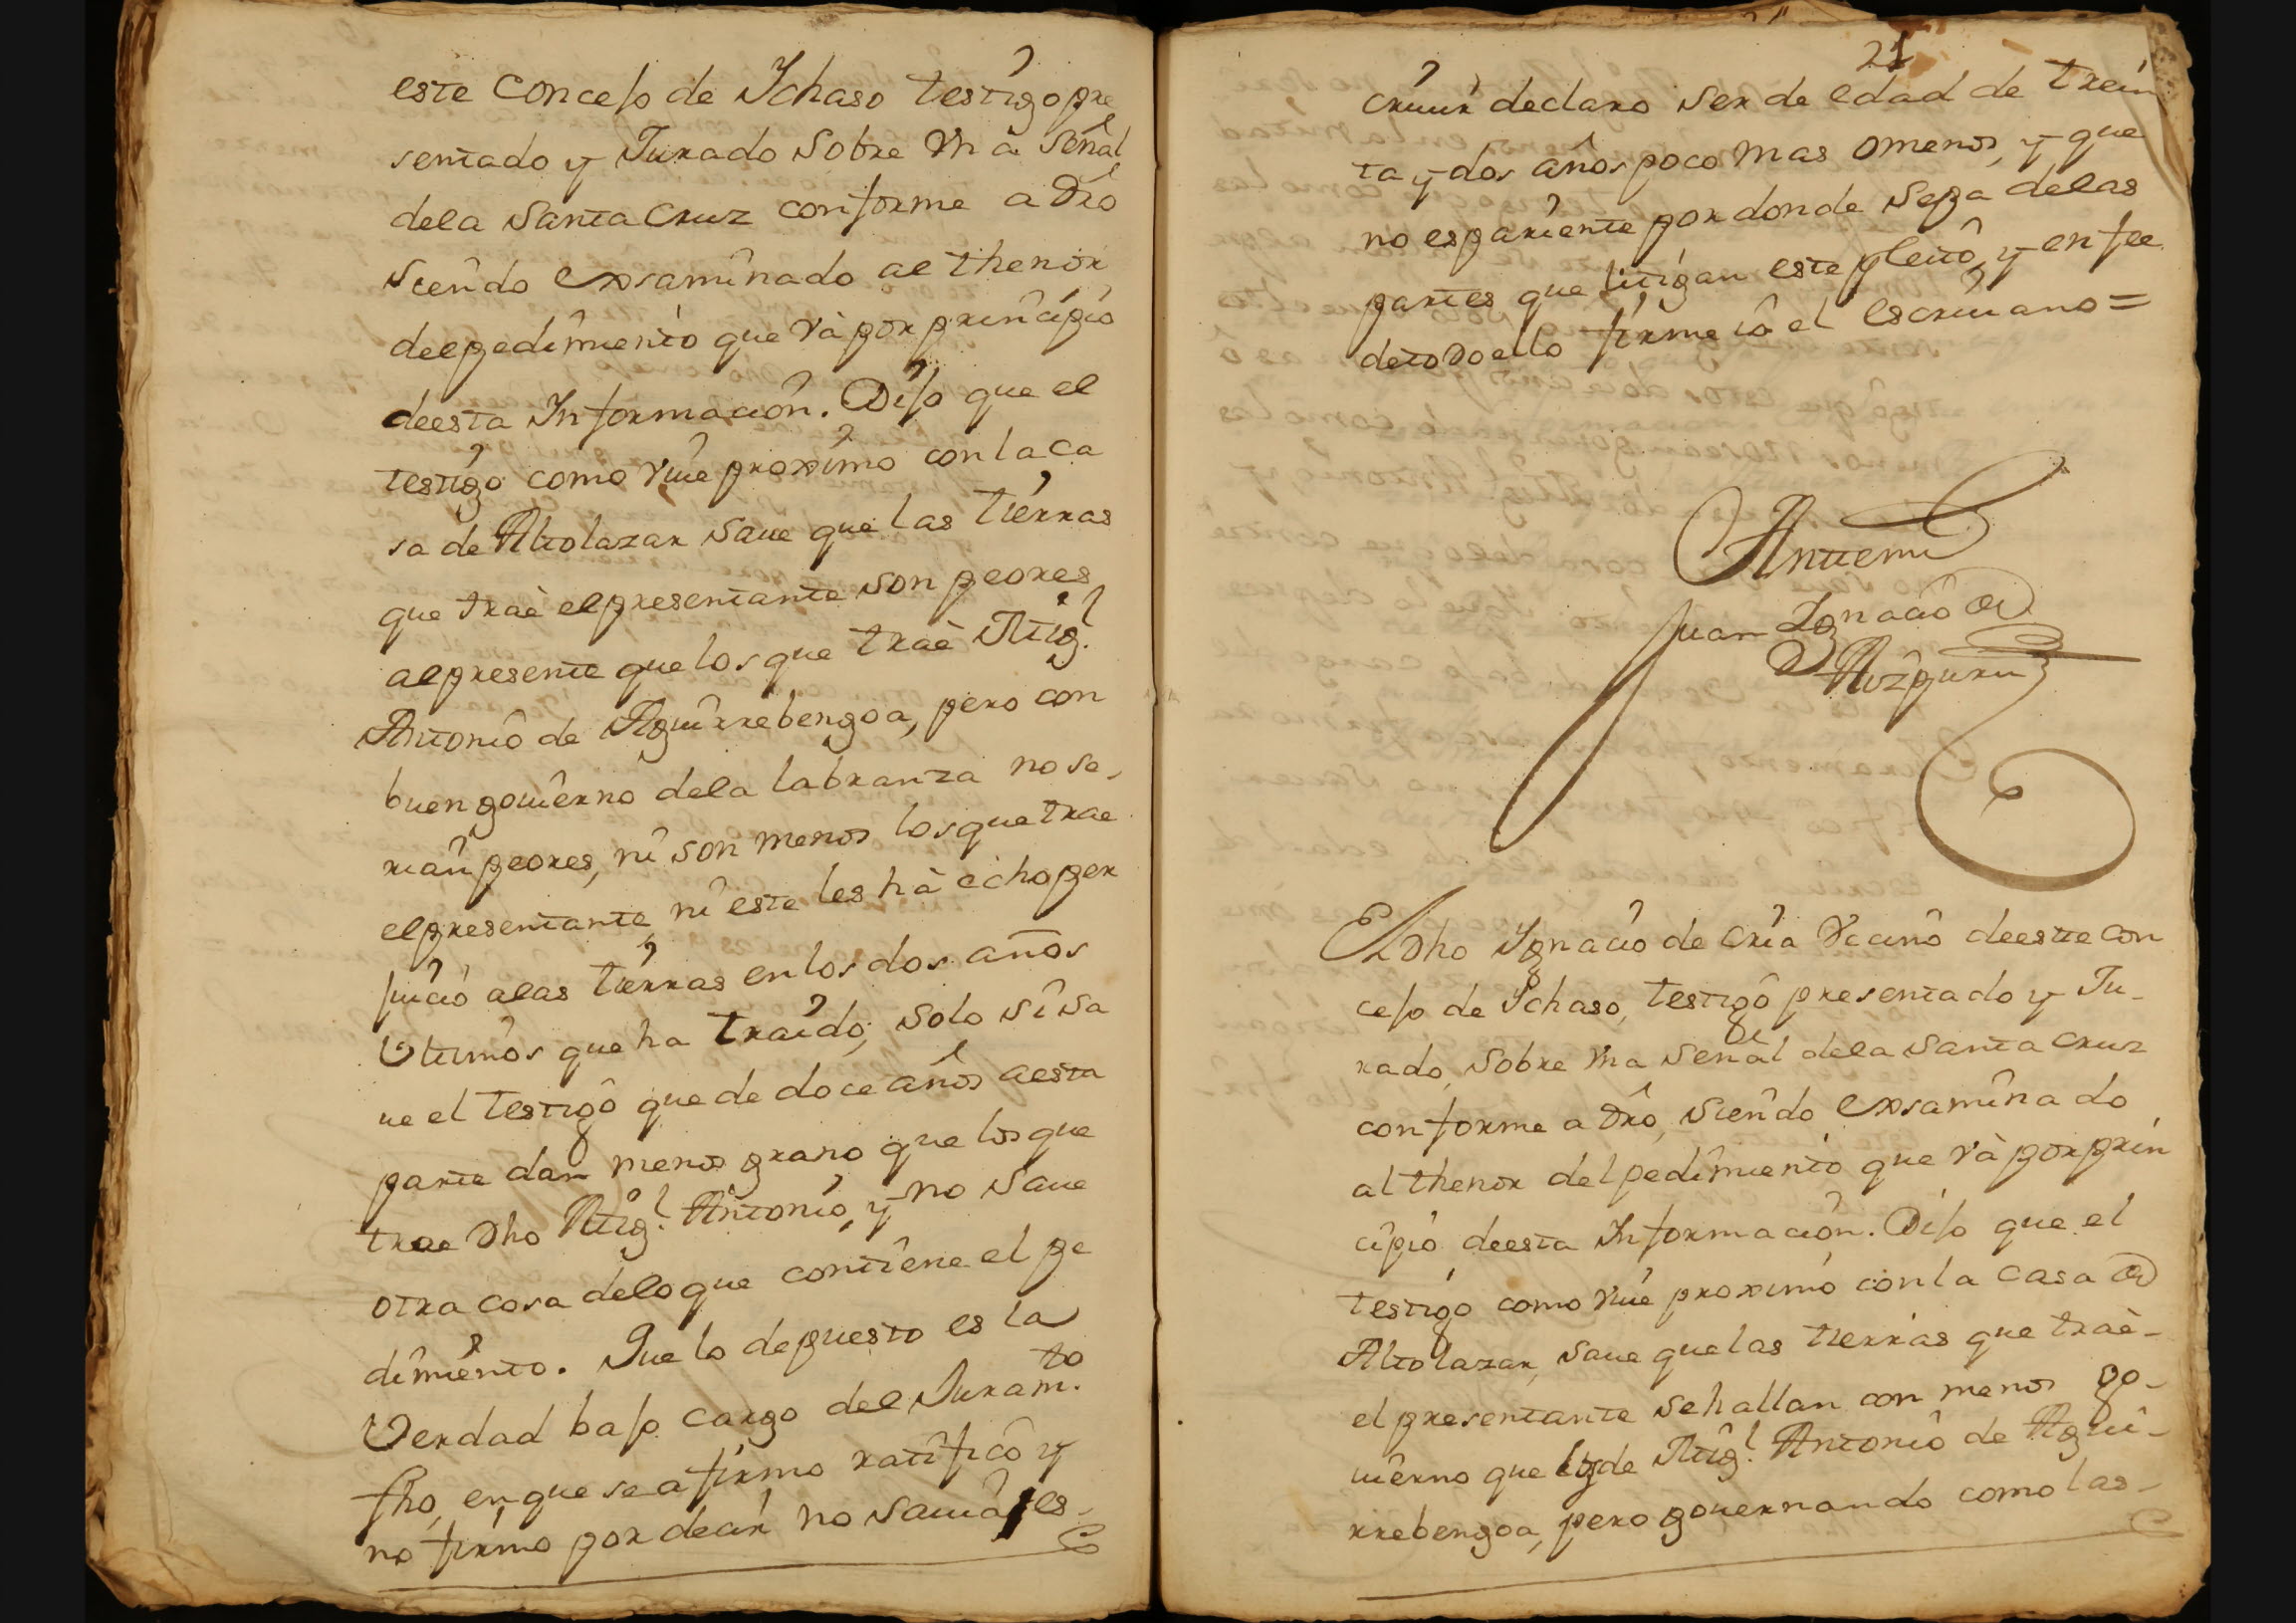 este Concejo de Ychaso testigo pre
sentado y Jurado sobre Vn a señal
dela Santa Cruz conforme a dro
siendo exsaminado al thenor
del pedimiento que và por principio
deesta Informacion. Dijo que el
testigo como viue proximo con la ca
sa de Altolazar saue que las tierras
que traè el presentante son peores
al presente que los que traè Mig.l
Antonio de Aguirrebengoa, pero con
buen gouierno dela labranza no se,
rian peores, ni son menos los que trae
el presentante, ni este les hà echo per
juicio alas tierras en los dos años
Vltimos que ha traido, solo si sa
ue el testigo que de doce años aesta
parte dan menos grano que los que
trae dho Mig.l Antonio, y no saue
otra cosa delo que contiene el pe
dimiento. Que lo depuesto es la
Verdad bajo cargo del Juram.to
fho, en que se afirmo ratificò y
no firmo por decir no sauia es-
21
criuir declaro ser de edad de trein
ta y dos años poco mas o menos, y que
no es pariente por donde sepa delas
partes que litigan este pleito, y en fee
detodo ello firme iò el escriuano =
Antemi
Juan Ignacio de
Aizpuru
El dho Ygnacio de Cria Vecino deeste con
cejo de Ychaso, testigo presentado y Ju-
rado, sobre Vna señal dela Santa Cruz
conforme a dro, siendo exsaminado
al thenor del pedimiento que và por prin
cipio deesta Informacion. Dijo que el
testigo como viue proximo con la casa de
Altolazar, saue que las tierras que traè-
el presentante se hallan con menos go-
uierno que los de Mig.l Antonio de Agui-
rrebengoa, pero gouernando como las-